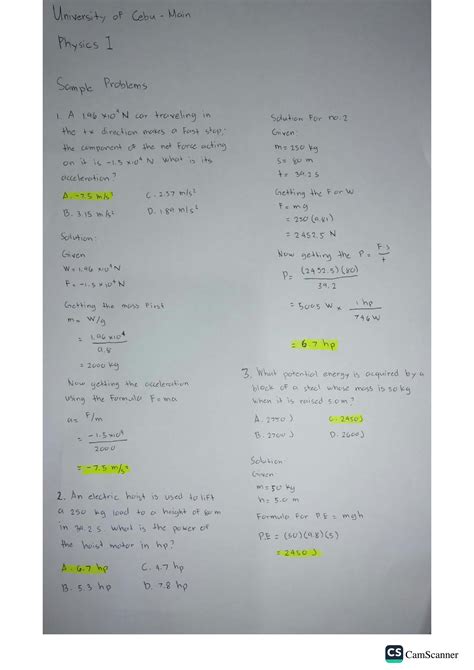 University of Cebu - Main
Physics I
Sample Problems
1. A 1.96 x10⁴ N car traveling in
the +x direction makes a fast stop;
the component of the net force acting
on it is -1.5 x10⁴ N. What is its
acceleration?
A. -7.5 m/s² C. 2.57 m/s²
B. 3.15 m/s² D. 1.89 m/s²
Solution:
Given
W= 1.96 x10⁴ N
F= -1.5 x10⁴ N
Getting the mass first
m= W/g
= 1.96 x10⁴
9.8
= 2000 kg
Now getting the acceleration
using the Formula F=ma
a= F/m
= -1.5 x10⁴
2000
= -7.5 m/s²
2. An electric hoist is used to lift
a 250 kg load to a height of 80 m
in 39.2 s. What is the power of
the hoist motor in hp?
A. 6.7 hp C. 4.7 hp
B. 5.3 hp D. 7.8 hp
Solution For no. 2
Given:
m= 250 kg
s= 80 m
t= 39.2 s
Getting the F or W
F= mg
= 250 (9.81)
= 2452.5 N
Now getting the P= F·s
t
P= (2452.5)(80)
39.2
= 5005 W x 1 hp
746 W
= 6.7 hp
3. What potential energy is acquired by a
block of a steel whose mass is 50 kg
when it is raised 5.0 m?
A. 2750 J C. 2450 J
B. 2700 J D. 2600 J
Solution:
Given:
m= 50 kg
h= 5.0 m
Formula For P.E = mgh
P.E = (50)(9.8)(5)
= 2450 J
CS CamScanner